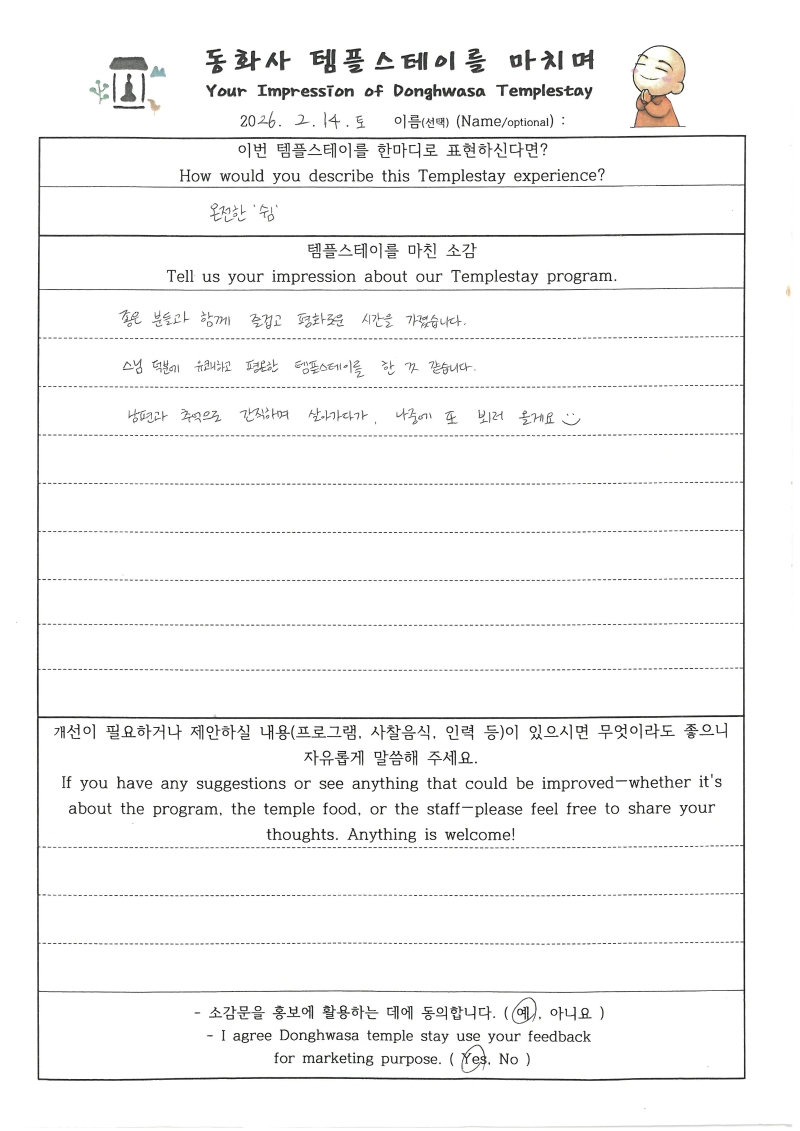 동화사 템플스테이를 마치며
Your Impression of Donghwasa Templestay
2026. 2. 14. 토 이름(선택) (Name/optional) :
이번 템플스테이를 한마디로 표현하신다면?
How would you describe this Templestay experience?
온전한 '쉼'
템플스테이를 마친 소감
Tell us your impression about our Templestay program.
좋은 분들과 함께 즐겁고 평화로운 시간을 가졌습니다.
스님 덕분에 유쾌하고 평온한 템플스테이를 한 것 같습니다.
남편과 추억으로 간직하며 살아가다가, 나중에 또 뵈러 올게요
개선이 필요하거나 제안하실 내용(프로그램, 사찰음식, 인력 등)이 있으시면 무엇이라도 좋으니
자유롭게 말씀해 주세요.
If you have any suggestions or see anything that could be improved—whether it's
about the program, the temple food, or the staff—please feel free to share your
thoughts. Anything is welcome!
- 소감문을 홍보에 활용하는 데에 동의합니다. ( 예, 아니요 )
- I agree Donghwasa temple stay use your feedback
for marketing purpose. ( Yes, No )